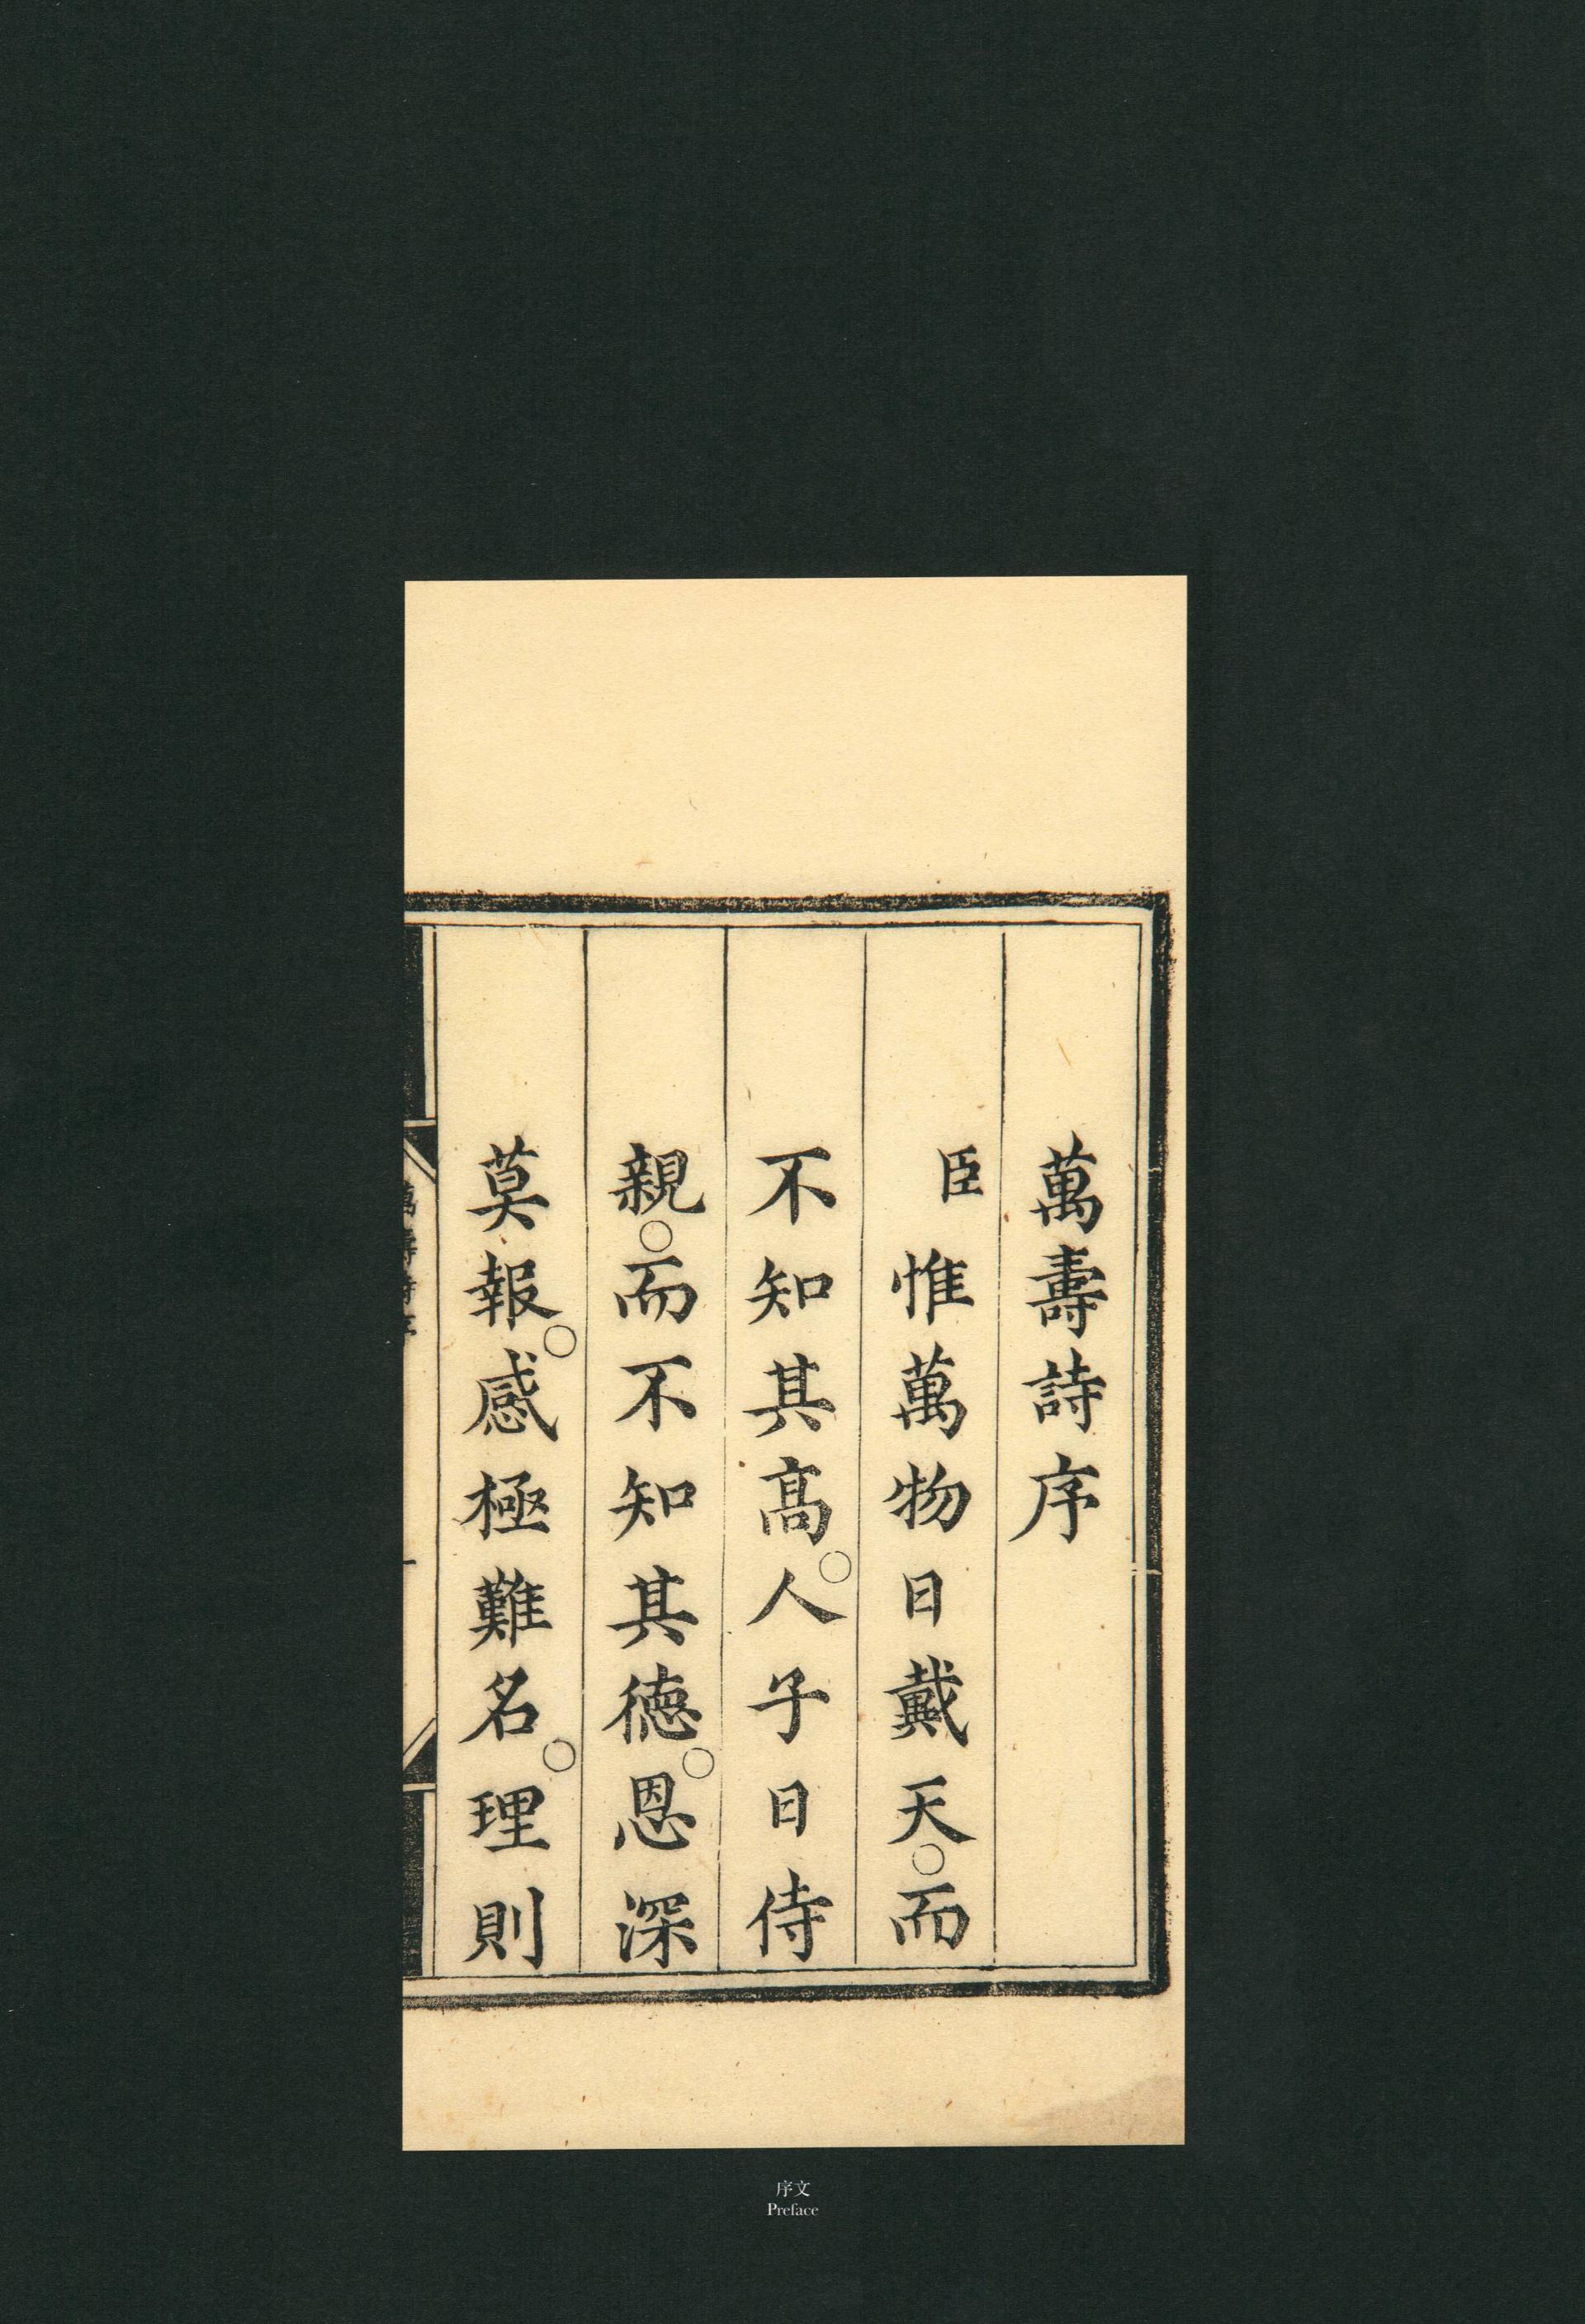 萬壽詩序
臣惟萬物日戴天○而
不知其高○人子日侍
親○而不知其德○恩深
莫報○感極難名○理則
萬壽詩序
一
序文
Preface